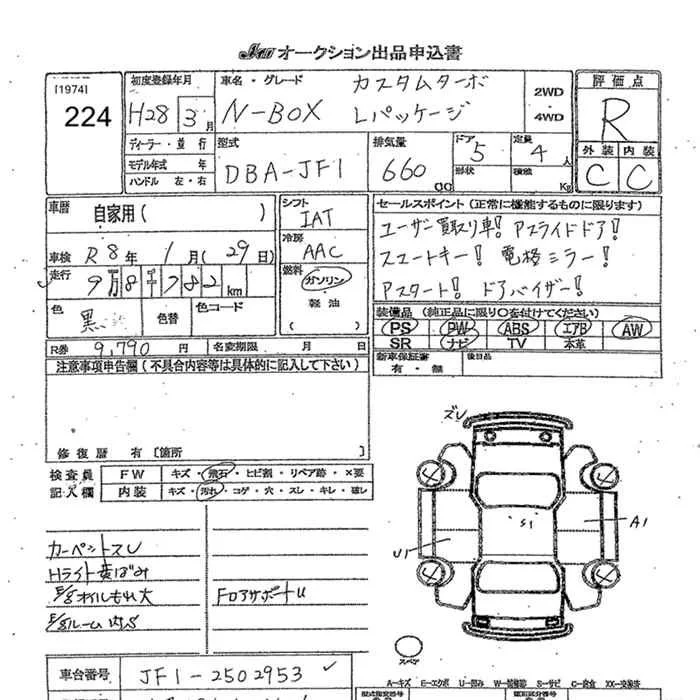 JAU オークション出品申込書
[1974]
224
初度登録年月
H28 3月
ディーラー・並行
モデル年式 年
ハンドル 左・右
車名・グレード
カスタムターボ
N-BOX Lパッケージ
2WD
4WD
型式
DBA-JF1
排気量
660 cc
ドア 5
形状
定員 4人
積載 Kg
評価点
R
外装 内装
C C
車歴
自家用( )
車検 R8年 1月(29日)
走行 9万8千782km
色 黒 色替 色コード
シフト
IAT
冷房
AAC
燃料
ガソリン
軽油
( )
セールスポイント(正常に機能するものに限ります)
ユーザー買取り車! Pスライドドア!
スマートキー! 電格ミラー!
Pスタート! ドアバイザー!
装備品(純正品に限り〇を付けてください)
PS PW ABS エアB AW
SR ナビ TV 本革
新車保証書
有・無
後日品
R券 9,790 円 名変期限 月 日
注意事項申告欄(不具合内容等は具体的に記入して下さい)
修復歴 有 [箇所 ]
検査員
記入欄
FW キズ・飛石・ヒビ割・リペア跡・×要
内装 キズ・汚れ・コゲ・穴・スレ・キレ・破レ
カーペットスレ
Hライト黄ばみ
E/gオイルもれ大
E/gルーム内S
FロアサポートU
ズレ
S1
A1
U1
スペア
車台番号 JF1-2502953
A-キズ E-エクボ U-凹み W-補修跡 S-サビ C-腐食 XX-交換済